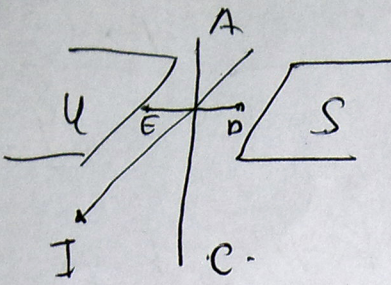 A
U
E
D
S
I
.C.